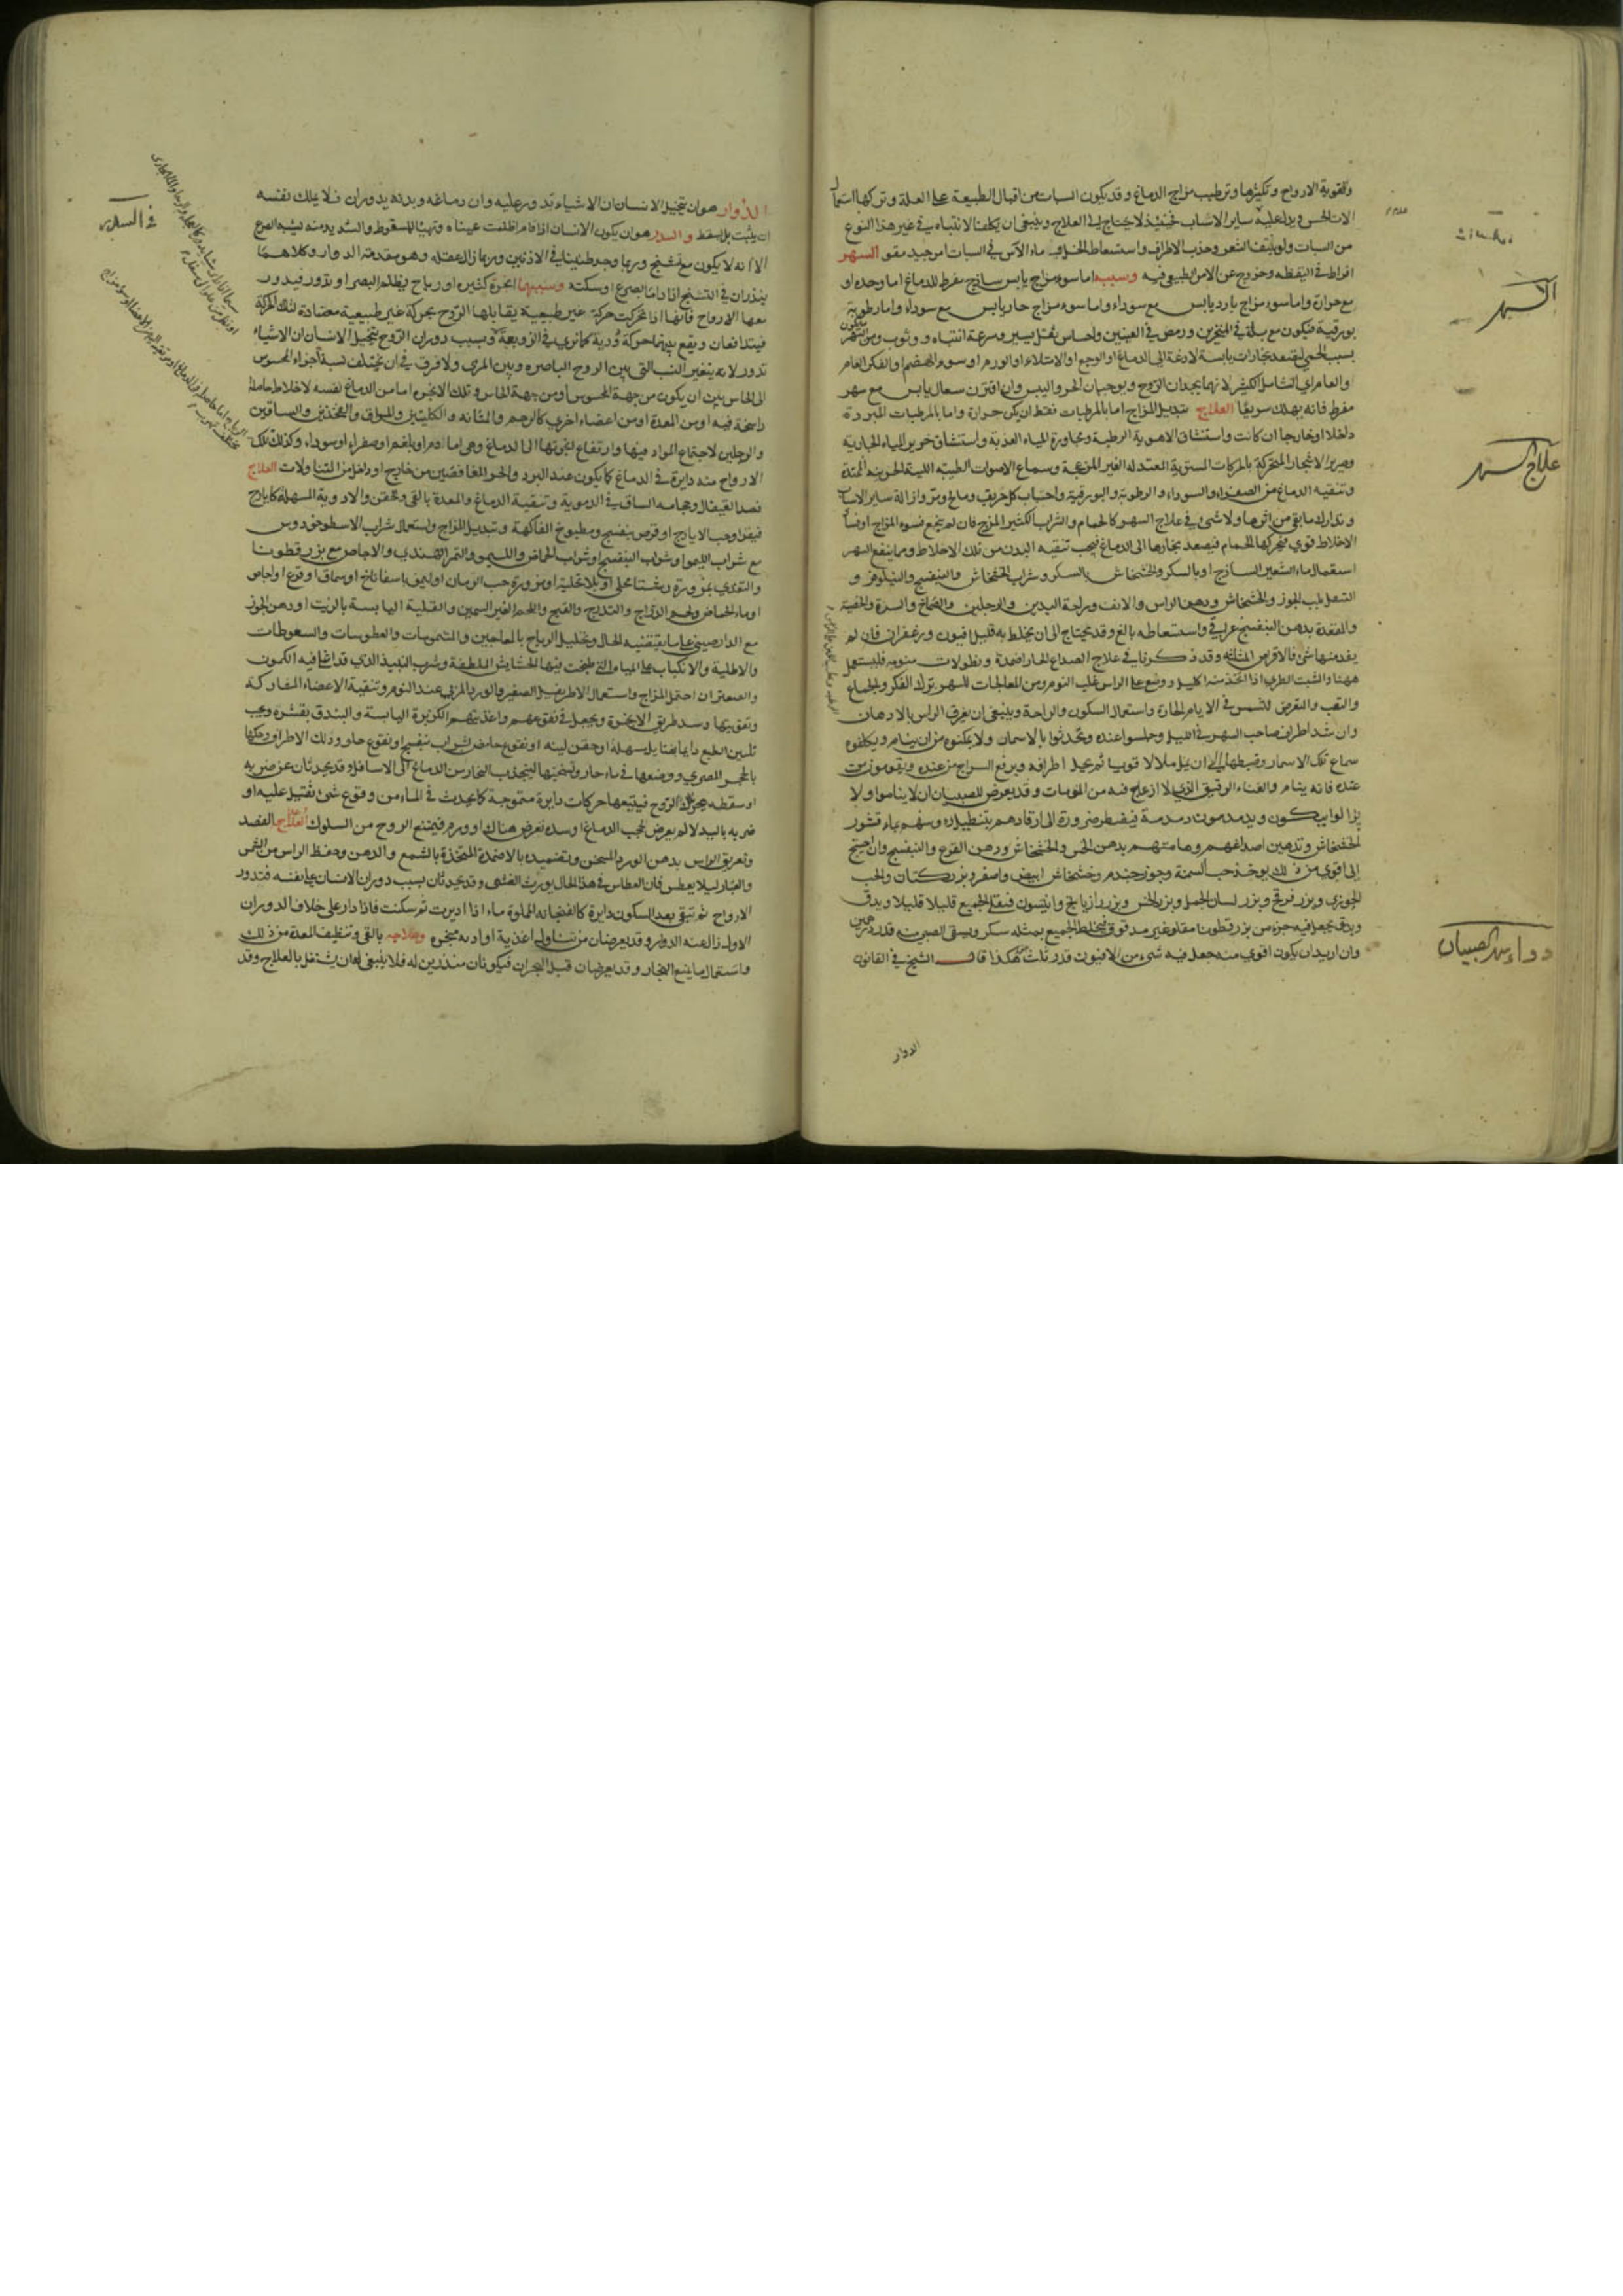 وتقوية الارواح وتكثيرها وترطيب مزاج الدماغ وقد يكون السبات من اقبال الطبيعة على العلة وتركها استعمال
الات الحس ويدل عليه ساير الاسباب فحينئذ لا يحتاج الى العلاج وينبغي ان يكلف الانتباه في غير هذا النوع
من السبات ولو بنتف الشعر وجذب الاطراف واستعاط الخل في ماء الآس في السبات امر جيد مقو السهر
افراط في اليقظه وخروج عن الامر الطبيعي فيه وسببه اما سوء مزاج يابس ساذج مفرط للدماغ اما وحده او
مع حرارة واما سوء مزاج بارد يابس مع سوداء واما سوء مزاج حار يابس مع سوداء واما رطوبة
بورقية فيكون مع بلة في المنخرين ورمص في العينين واحساس بثقل يسير وسرعة انتباه ووثوب
بسبب الحمى بخارات يابسة لاذعة الى الدماغ او الوجع او الامتلاء او الورم او سوء الهضم او الفكر العام
والعام اي الشامل الكثير لانهما يجدان الروح ويوجبان الحر واليبس وان اقترن سعال يابس مع سهر
مفرط فانه يهلك سريعا العلاج تبديل المزاج اما بالمرطبات فقط ان لم يكن حرارة واما بالمرطبات المبردة
داخلا وخارجا ان كانت واستنشاق الاهوية الرطبة ومجاورة المياه العذبة واستنشاق خرير المياه الجارية
وصرير الاشجار المتحركة بالحركات السوية المعتدله الغير المزعجة وسماع الاصوات الطيبه اللينة
وتنقيه الدماغ من الصفراء والسوداء والرطوبه والبورقية واجتناب كل حريف ومالح ومر وازالة ساير الاسباب
وتدارك ما بقي من اثرها ولا شيء في علاج السهر كالحمام والشراب الكثير المزج فان لم ينجع فسوء المزاج او
الاخلاط قوي فيحركها الحمام فيصعد بخارها الى الدماغ فيجب تنقيه البدن من تلك الاخلاط ومما ينفع السهر
استعمال ماء الشعير الساذج او بالسكر والخشخاش بالسكر وشراب الخشخاش والبنفسج والنيلوفر و
التنقل بلب الجوز والخشخاش ودهن الراس والانف وراحة اليدين والرجلين والصماخ والسرة والخصية
والمقعدة بدهن البنفسج عراقي واستعاطه بالغ وقد يحتاج الى ان يخلط به قليل افيون وزعفران فان لم
يفد منها شيء فالاقرص المثلثه وقد ذكرنا في علاج الصداع الحار اضمدة ونطولات منومه فليستعمل
ههنا والشبت الطري اذا اتخذ منه اكليل ووضع على الراس غلب النوم ومن المعالجات للسهر ترك الفكر والجماع
والتعب والتعرض للشمس في الايام الحارة واستعمال السكون والراحة وينبغي ان يغرق الراس بالادهان
وان شد اطراف صاحب السهر في الليل وجلسوا عنده وتحدثوا بالاسمار ولا يمكنوه من ان ينام ويكلفوه
سماع تلك الاسمار وضبطها الى ان يمل ملالا قويا ثم يحل اطرافه ويرفع السراج من عنده ويقومون من
عنده فانه ينام والغناء الرقيق الذي لا ازعاج فيه من المنومات وقد يعرض للصبيان ان لا يناموا ولا
يزالوا يبكون ويدمدمون دمدمة فيضطر ضرورة الى ارقادهم بتنطيل وسقيهم بماء قشور
الخشخاش وتدهين اصداغهم وهامتهم بدهن الخس والخشخاش ودهن القرع والبنفسج وان احتيج
الى اقوى من ذلك يوخذ حب السمنة وجوز جندم وخشخاش ابيض واصفر وبزر كتان والحب
الجوزي وبزر فرفخ وبزر لسان الحمل وبزر الخس وبزر رازيانج وانيسون فيقلى الجميع قليلا قليلا ويدق
ويدق يجعل فيه جزء من بزر قطونا مقلو غير مدقوق فيخلط الجميع بمثله سكر ويسقى الصبي منه قدر درهمين
وان اريد ان يكون اقوى منه جعل فيه شيء من الافيون قدر ثلث هكذا قال الشيخ في القانون
السهر
علاج السهر
دواء سهر الصبيان
الدوار
الدوار هو ان يتخيل الانسان ان الاشياء تدور عليه وان دماغه وبدنه يدوران فلا يملك نفسه
ان يثبت بل يسقط والسدر هو ان يكون الانسان اذا قام اظلمت عيناه وتهيأ للسقوط والشديد منه يشبه الصرع
الا انه لا يكون مع تشنج وربما وجد طنينا في الاذنين وربما زال عقله وهو مقدمة الدوار وكلاهما
ينذران في التشنج اذا داما بصرع او سكتة وسببهما ابخرة كثيرة او رياح يظلم البصر او تدور فيدور
معها الارواح فانها اذا تحركت حركة غير طبيعية يقابلها الروح بحركة غير طبيعية مضادة لتلك الحركة
فيتدافعان ويقع بينهما حركة دورية كما نرى في الزوبعة وسبب دوران الروح يتخيل الانسان ان الاشياء
تدور لانه يتغير النسب التي بين الروح الباصره وبين المرئي ولا فرق في ان يختلف نسبة اجزاء المحسوس
الى الحاس بين ان يكون من جهة المحسوس او من جهة الحاس وتلك الابخره اما من الدماغ نفسه لاخلاط حاصلة
راسخة فيه او من المعدة او من اعضاء اخرى كالرحم والمثانه والكليتين والمراق والفخذين والساقين
والرجلين لاجتماع المواد فيها وارتفاع ابخرتها الى الدماغ وهي اما دم او بلغم او صفراء او سوداء وكذلك تلك
الارواح منه دايرة في الدماغ كما يكون عند البرد والحر المغافصين من خارج او داخل من المتناولات العلاج
فصد القيفال وحجامه الساق في الدموية وتنقية الدماغ والمعدة بالقي والحقن والادوية المسهلة كايارج
فيقرا وحب الايارج او قرص بنفسج ومطبوخ الفاكهة وتبديل المزاج واستعمال شراب الاسطوخودوس
مع شراب الليمو او شراب البنفسج او شراب الحماض والليمو والتمر الهندي والاجاص مع بزر قطونا
والتغذي بمزورة حب الرمان او ليمو باسفاناخ او سماق او قرع او اجاص
او ماء الحماض ولحم الدراج والتدرج والقبج واللحم الغير السمين والقلية اليابسة بالزيت او دهن الجوز
مع الدارصيني على ما يقتضيه الحال وتحليل الرياح بالمعاجين والشمومات والعطوسات والسعوطات
والاطلية والانكباب على المياه التي طبخت فيها الحشايش الملطفة وشرب النبيذ الذي قد اغلي فيه الكمون
والصعتر ان احتمل المزاج واستعمال الاطريفل الصغير والورد المربى عند النوم وتنقية الاعضاء المشاركة
وتقويتها وسد طريق الابخرة ويجعل في نقوعهم واغذيتهم الكزبرة اليابسة والبندق بقشره ويجب
تليين الطبع دايما بفتايل مسهلة او حقن لينه او نقوع حامض بشراب بنفسج او نقوع حلو ودلك الاطراف وحكها
بالحجر المصري ووضعها في ماء حار وتسخينها لينجذب البخار من الدماغ الى الاسافل وقد يحدثان عن ضربه
او سقطه يحرك الروح فيتبعها حركات دايرة متموجة كما يحدث في الماء من وقوع شيء ثقيل عليه او
ضربه باليد لالم يعرض لحجب الدماغ او سدة تعرض هناك او ورم فيمتنع الروح من السلوك العلاج الفصد
وتعريق الراس بدهن الورد المسخن وتضميده بالاضمدة المتخذة بالشمع والدهن وحفظ الراس من الشمس
والغبار ليلا يعطس فان العطاس في هذا الحال يورث الغشي وقد يحدثان بسبب دوران الانسان على نفسه فتدور
الارواح ثم تبقى بعد السكون دايرة كالفنجانه المملوة ماء اذا اديرت ثم سكنت فاذا دار على خلاف الدوران
الاول زال عنه الدوار وقد يعرضان من تناول اغذية او ادوية مبخره وعلاجه بالقي وتنظيف المعدة من ذلك
واستعمال ما يمنع البخار وقد يعرضان قبل البحران فيكونان منذرين له فلا ينبغي لهما ان يشتغل بالعلاج وقد
في السدر